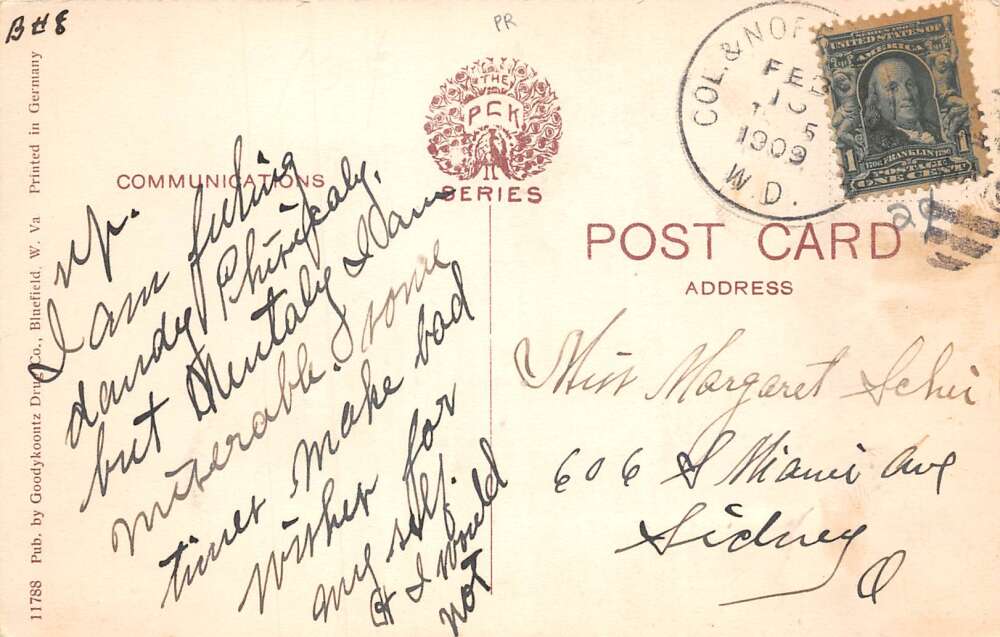 B H 8
PR
11788 Pub. by Goodykoontz Drug Co., Bluefield, W. Va Printed in Germany
COMMUNICATIONS
THE
PCK
SERIES
COL. & NOR
FEB
10
1909
W.D.
UNITED STATES OF
AMERICA
1 1706 FRANKLIN 1790 1
POSTAGE
ONE CENT
POST CARD
ADDRESS
Miss Margaret
606 S Miami Ave
Sidney
O
up.
I am fuling
dandy Phinically,
but Mentaly I am
miserable. some
times make bad
wishes for
my self.
I would
not